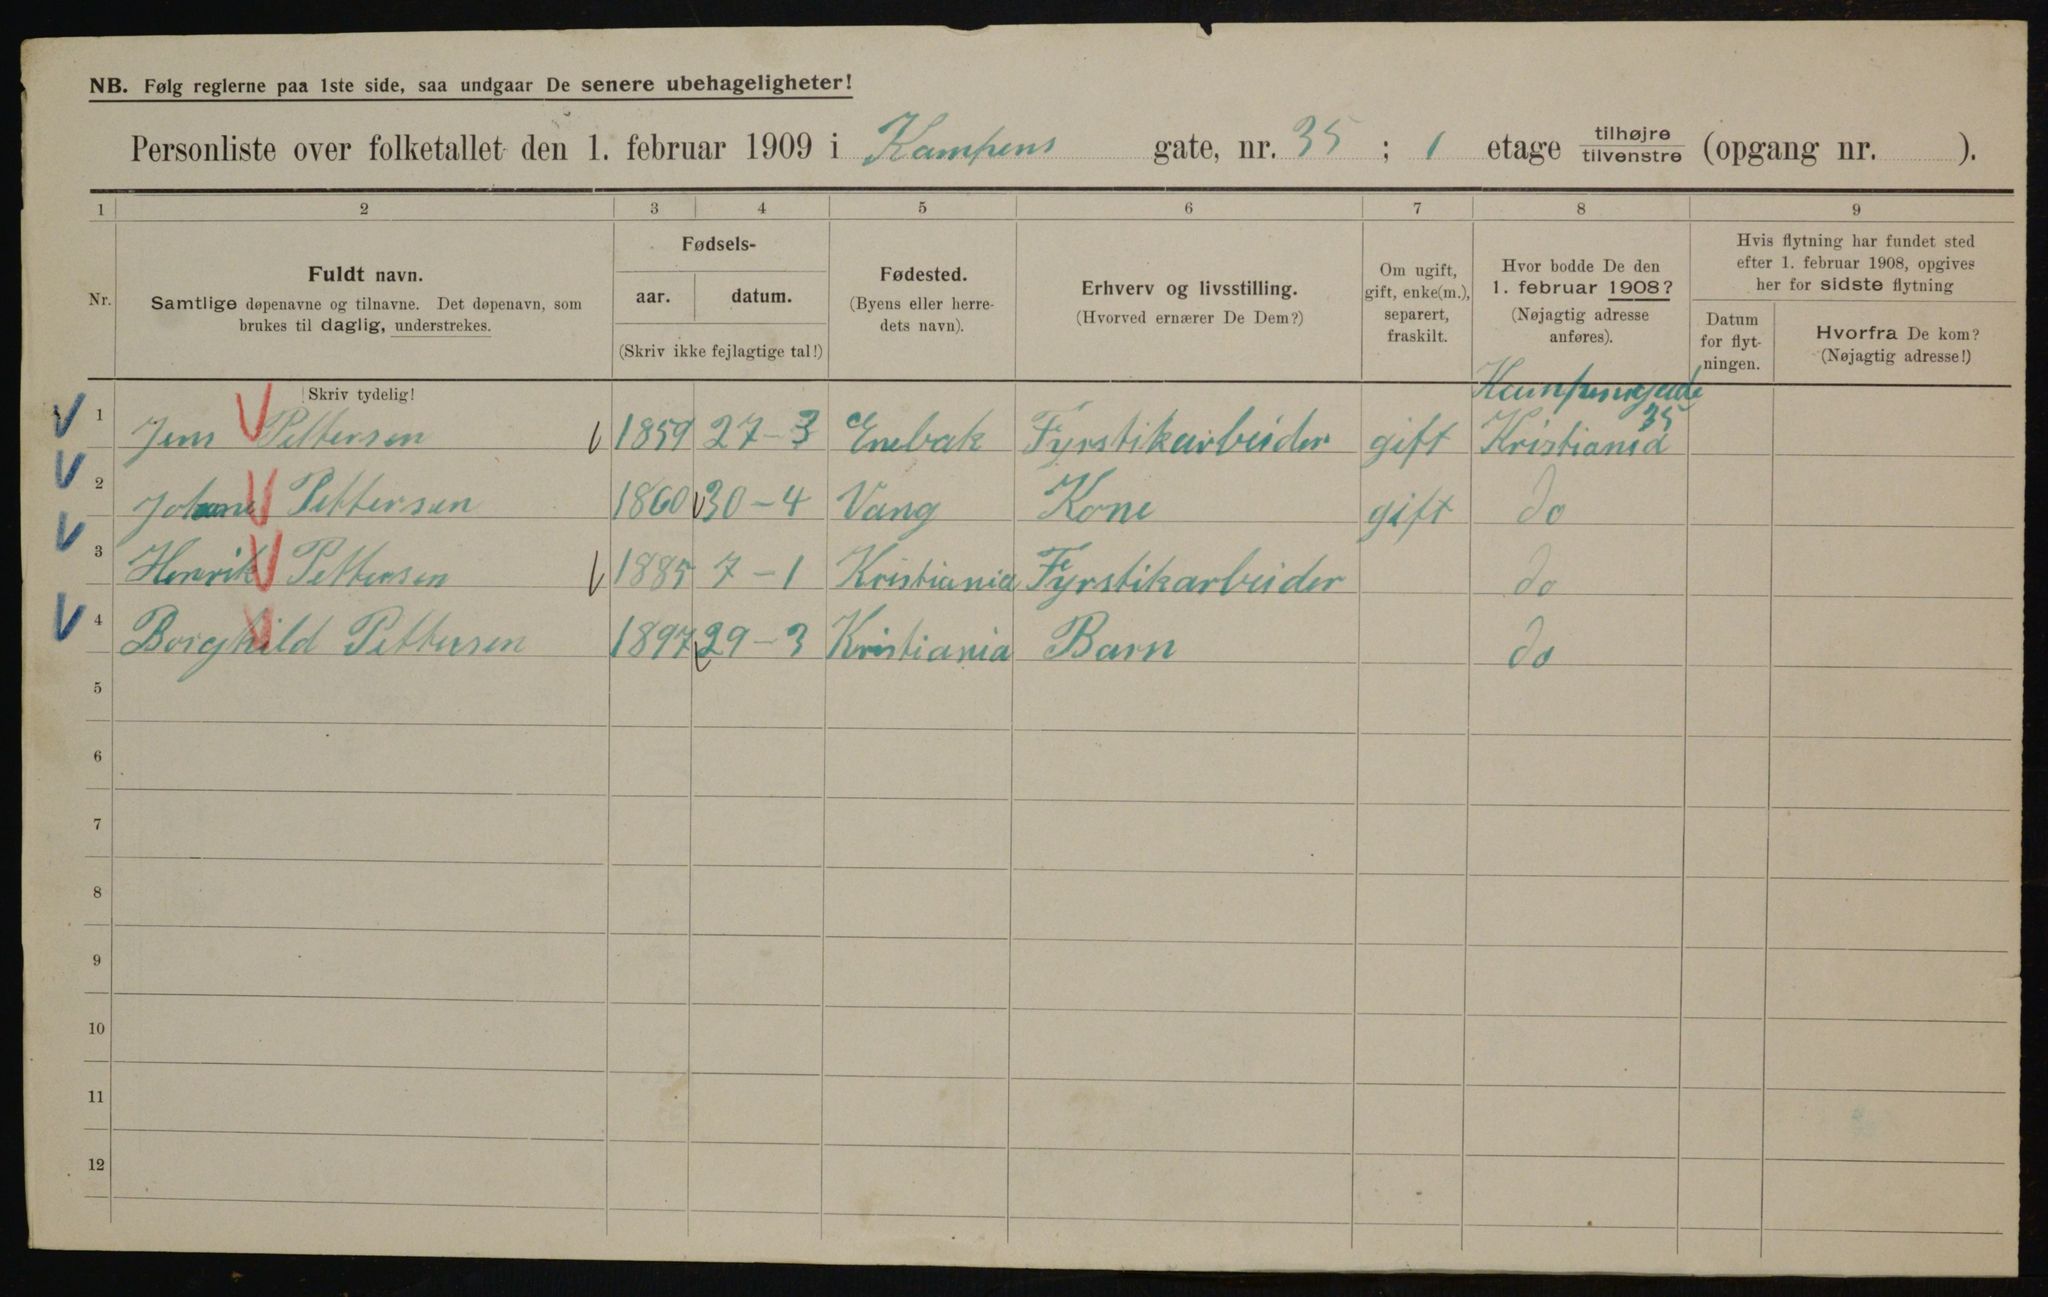 NB. Følg reglerne paa 1ste side, saa undgaar De senere ubehageligheter!
Personliste over folketallet den 1. februar 1909 i Kampens gate, nr. 35 ; 1 etage tilhøjre/tilvenstre (opgang nr. ).
1 2 3 4 5 6 7 8 9
Nr.
Fuldt navn.
Samtlige døpenavne og tilnavne. Det døpenavn, som
brukes til daglig, understrekes.
Fødsels-
aar. datum.
(Skriv ikke fejlagtige tal!)
Fødested.
(Byens eller herre-
dets navn).
Erhverv og livsstilling.
(Hvorved ernærer De Dem?)
Om ugift,
gift, enke(m.),
separert,
fraskilt.
Hvor bodde De den
1. februar 1908?
(Nøjagtig adresse
anføres).
Hvis flytning har fundet sted
efter 1. februar 1908, opgives
her for sidste flytning
Datum
for flyt-
ningen.
Hvorfra De kom?
(Nøjagtig adresse!)
Skriv tydelig!
Kampensgade
35
1 Jens Pettersen 1859 27-3 Enebak Fyrstikarbeider gift Kristiania
2 Johane Pettersen 1860 30-4 Vang Kone gift do
3 Henrik Pettersen 1885 7-1 Kristiania Fyrstikarbeider do
4 Borghild Pettersen 1897 29-3 Kristiania Barn do
5
6
7
8
9
10
11
12